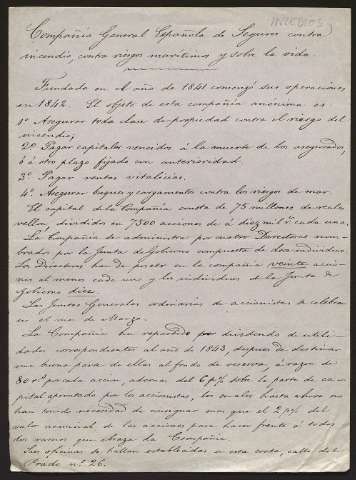 INCENDIOS
Compañia General Española de Seguros contra
incendio, contra riesgos maritimos y sobre la vida.
Fundada en el año de 1841 comenzó sus operaciones
en 1842. El objeto de esta compañia anonima es
1º Asegurar toda clase de propiedad contra el riesgo del
incendio;
2º Pagar capitales vencidos á la muerte de los asegurados,
ó á otro plazo fijado con anterioridad.
3º Pagar rentas vitalicias.
4º Asegurar buques y cargamentos contra los riesgos de mar.
El capital de la Compañia consta de 75 millones de reales
vellon, divididos en 7500 acciones de á diez mil rs cada una.
La Compañia se administra por cuatro Directores nom-
brados por la Junta de Gobierno compuesta de doce individuos.
Los Directores han de poseer en la compañia veinte accio-
nes al menos cada uno y los individuos de la Junta de
Gobierno diez.
Las Juntas Generales ordinarias de accionistas se celebran
en el mes de Marzo.
La Compañia ha repartido por dividendo de utili-
dades correspondientes al año de 1843, despues de destinar
una buena parte de ellas al fondo de reserva, á razon de
80 rs por cada accion, ademas del 6 p% sobre la parte de ca-
pital aprontado por los accionistas, los cuales hasta ahora no
han tenido necesidad de consignar mas que el 2 p% del
valor nominal de las acciones para hacer frente á todos
los ramos que abraza la Compañia.
Sus oficinas se hallan establecidas en esta corte, calle del
Prado nº 26.